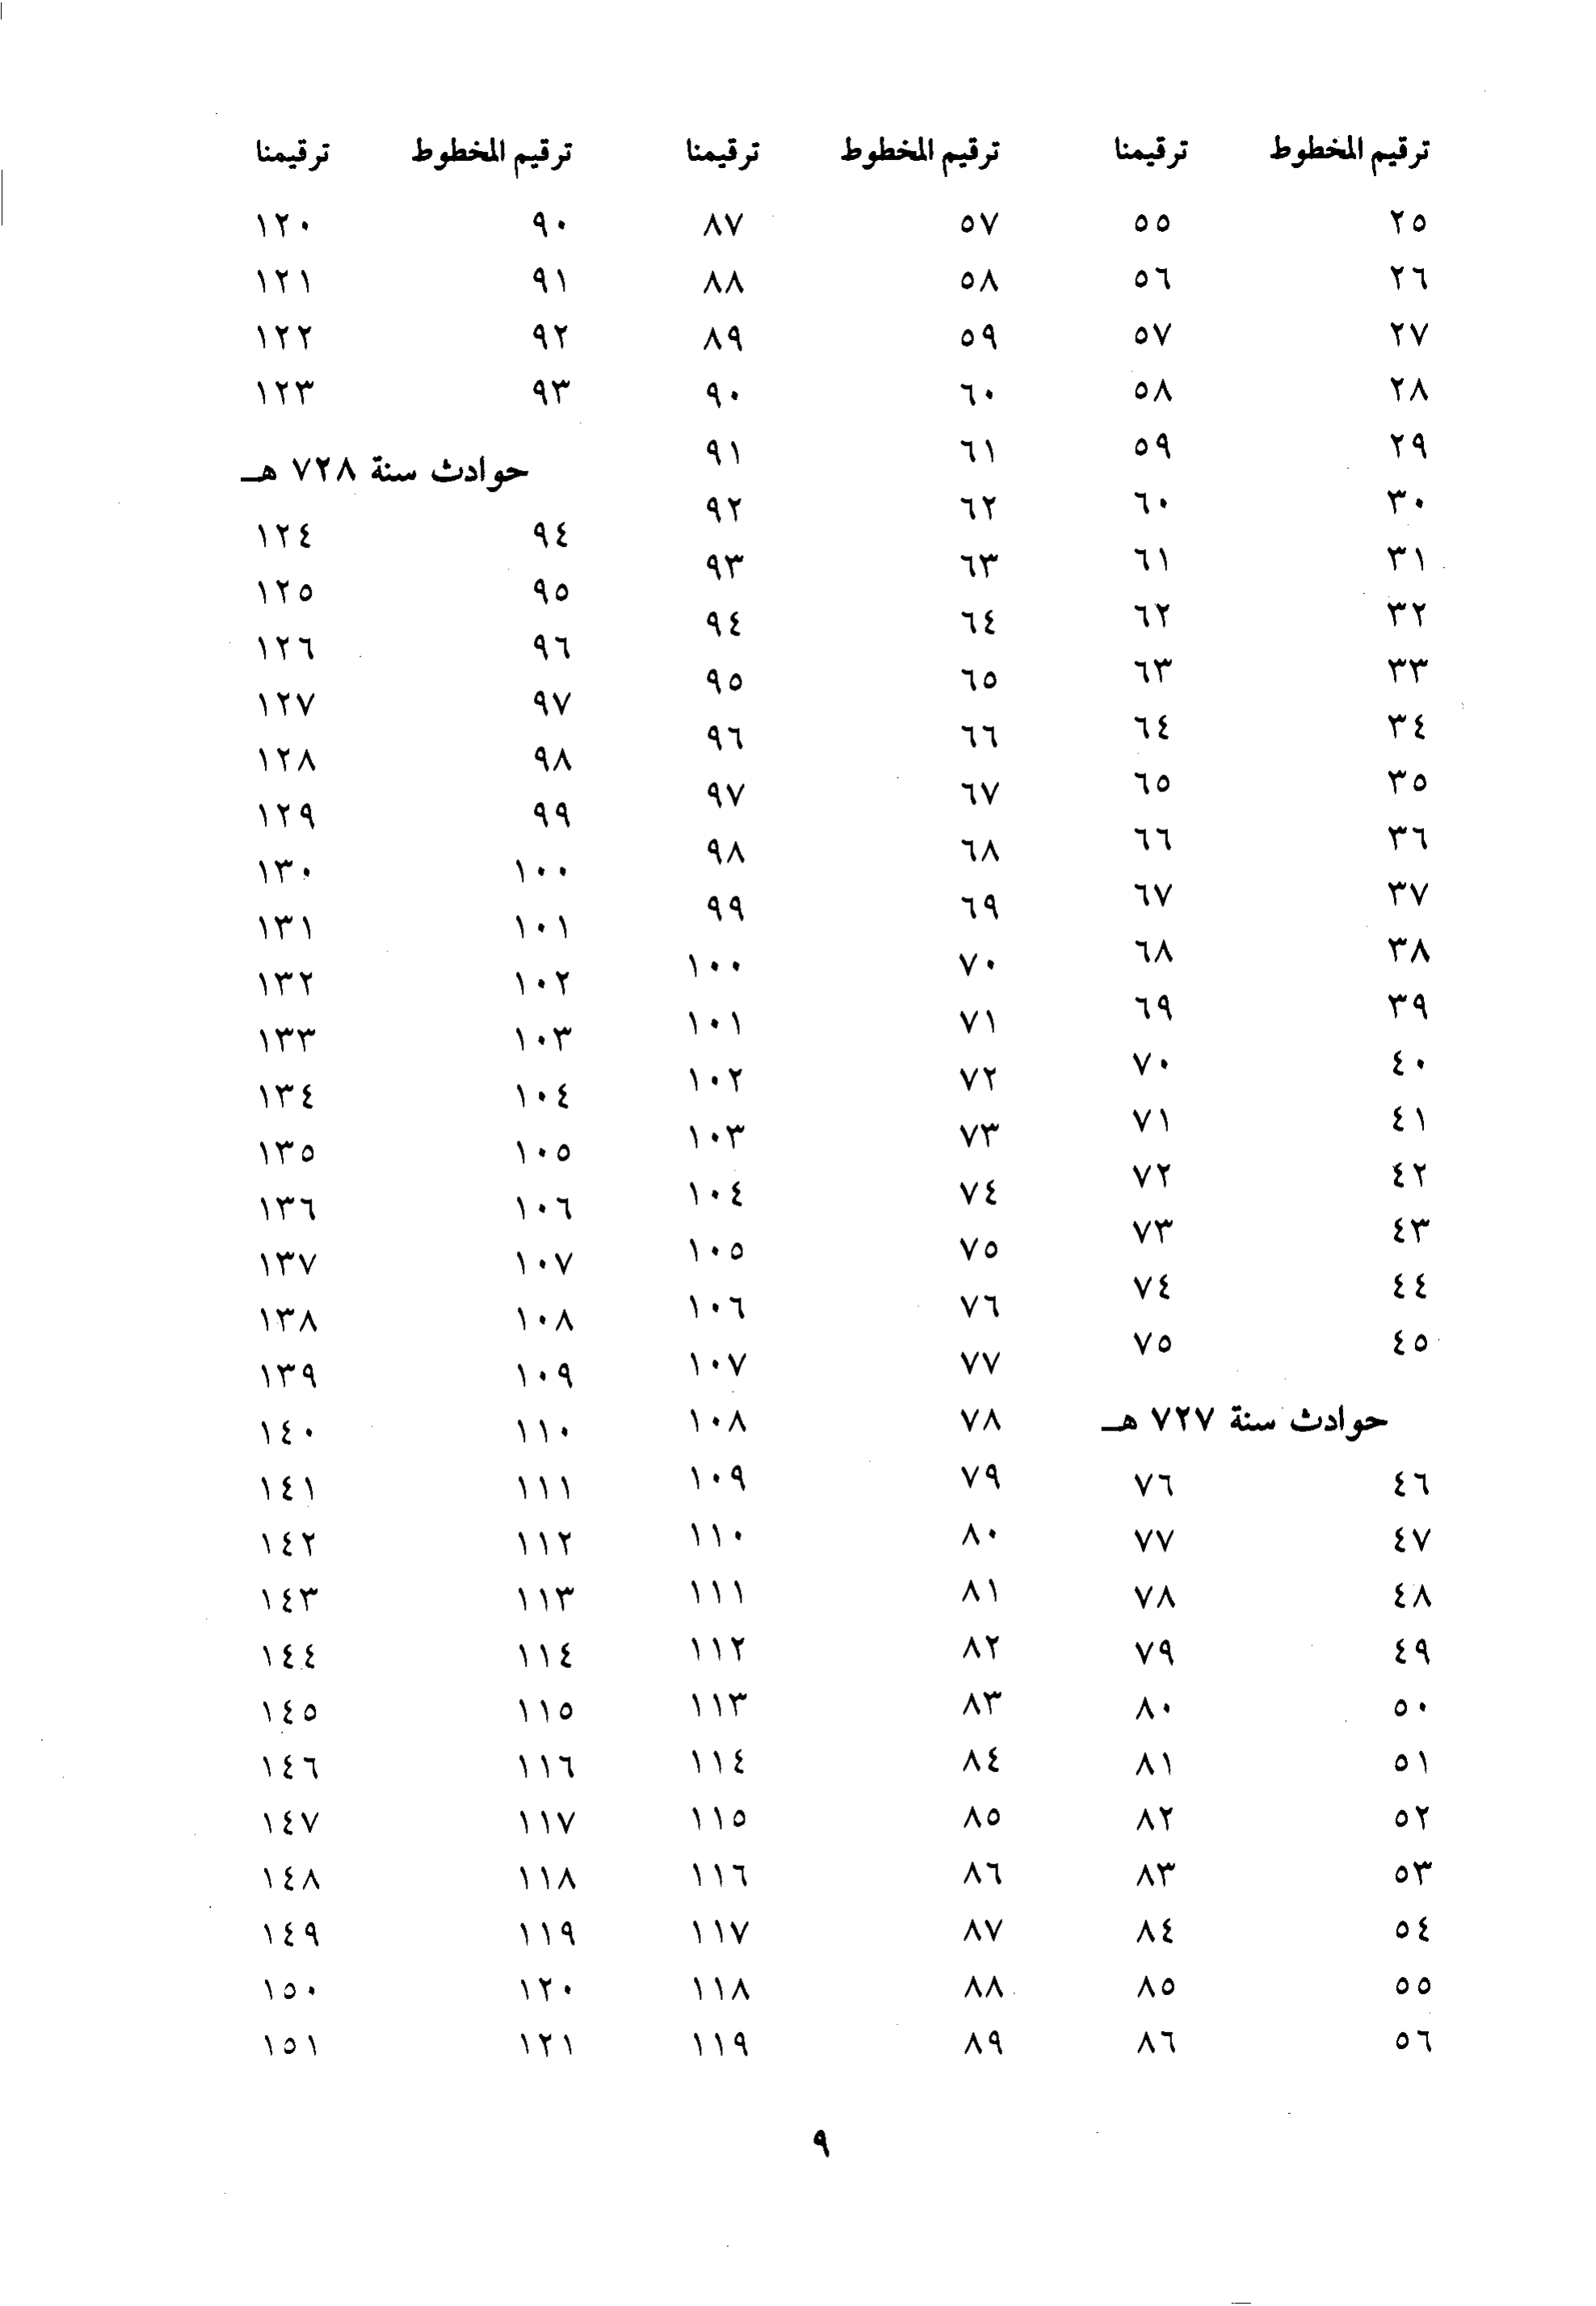 ترقيم المخطوط ترقيمنا
٢٥ ٥٥
٢٦ ٥٦
٢٧ ٥٧
٢٨ ٥٨
٢٩ ٥٩
٣٠ ٦٠
٣١ ٦١
٣٢ ٦٢
٣٣ ٦٣
٣٤ ٦٤
٣٥ ٦٥
٣٦ ٦٦
٣٧ ٦٧
٣٨ ٦٨
٣٩ ٦٩
٤٠ ٧٠
٤١ ٧١
٤٢ ٧٢
٤٣ ٧٣
٤٤ ٧٤
٤٥ ٧٥
حوادث سنة ٧٢٧ هـ
٤٦ ٧٦
٤٧ ٧٧
٤٨ ٧٨
٤٩ ٧٩
٥٠ ٨٠
٥١ ٨١
٥٢ ٨٢
٥٣ ٨٣
٥٤ ٨٤
٥٥ ٨٥
٥٦ ٨٦
ترقيم المخطوط ترقيمنا
٥٧ ٨٧
٥٨ ٨٨
٥٩ ٨٩
٦٠ ٩٠
٦١ ٩١
٦٢ ٩٢
٦٣ ٩٣
٦٤ ٩٤
٦٥ ٩٥
٦٦ ٩٦
٦٧ ٩٧
٦٨ ٩٨
٦٩ ٩٩
٧٠ ١٠٠
٧١ ١٠١
٧٢ ١٠٢
٧٣ ١٠٣
٧٤ ١٠٤
٧٥ ١٠٥
٧٦ ١٠٦
٧٧ ١٠٧
٧٨ ١٠٨
٧٩ ١٠٩
٨٠ ١١٠
٨١ ١١١
٨٢ ١١٢
٨٣ ١١٣
٨٤ ١١٤
٨٥ ١١٥
٨٦ ١١٦
٨٧ ١١٧
٨٨ ١١٨
٨٩ ١١٩
ترقيم المخطوط ترقيمنا
٩٠ ١٢٠
٩١ ١٢١
٩٢ ١٢٢
٩٣ ١٢٣
حوادث سنة ٧٢٨ هـ
٩٤ ١٢٤
٩٥ ١٢٥
٩٦ ١٢٦
٩٧ ١٢٧
٩٨ ١٢٨
٩٩ ١٢٩
١٠٠ ١٣٠
١٠١ ١٣١
١٠٢ ١٣٢
١٠٣ ١٣٣
١٠٤ ١٣٤
١٠٥ ١٣٥
١٠٦ ١٣٦
١٠٧ ١٣٧
١٠٨ ١٣٨
١٠٩ ١٣٩
١١٠ ١٤٠
١١١ ١٤١
١١٢ ١٤٢
١١٣ ١٤٣
١١٤ ١٤٤
١١٥ ١٤٥
١١٦ ١٤٦
١١٧ ١٤٧
١١٨ ١٤٨
١١٩ ١٤٩
١٢٠ ١٥٠
١٢١ ١٥١
٩